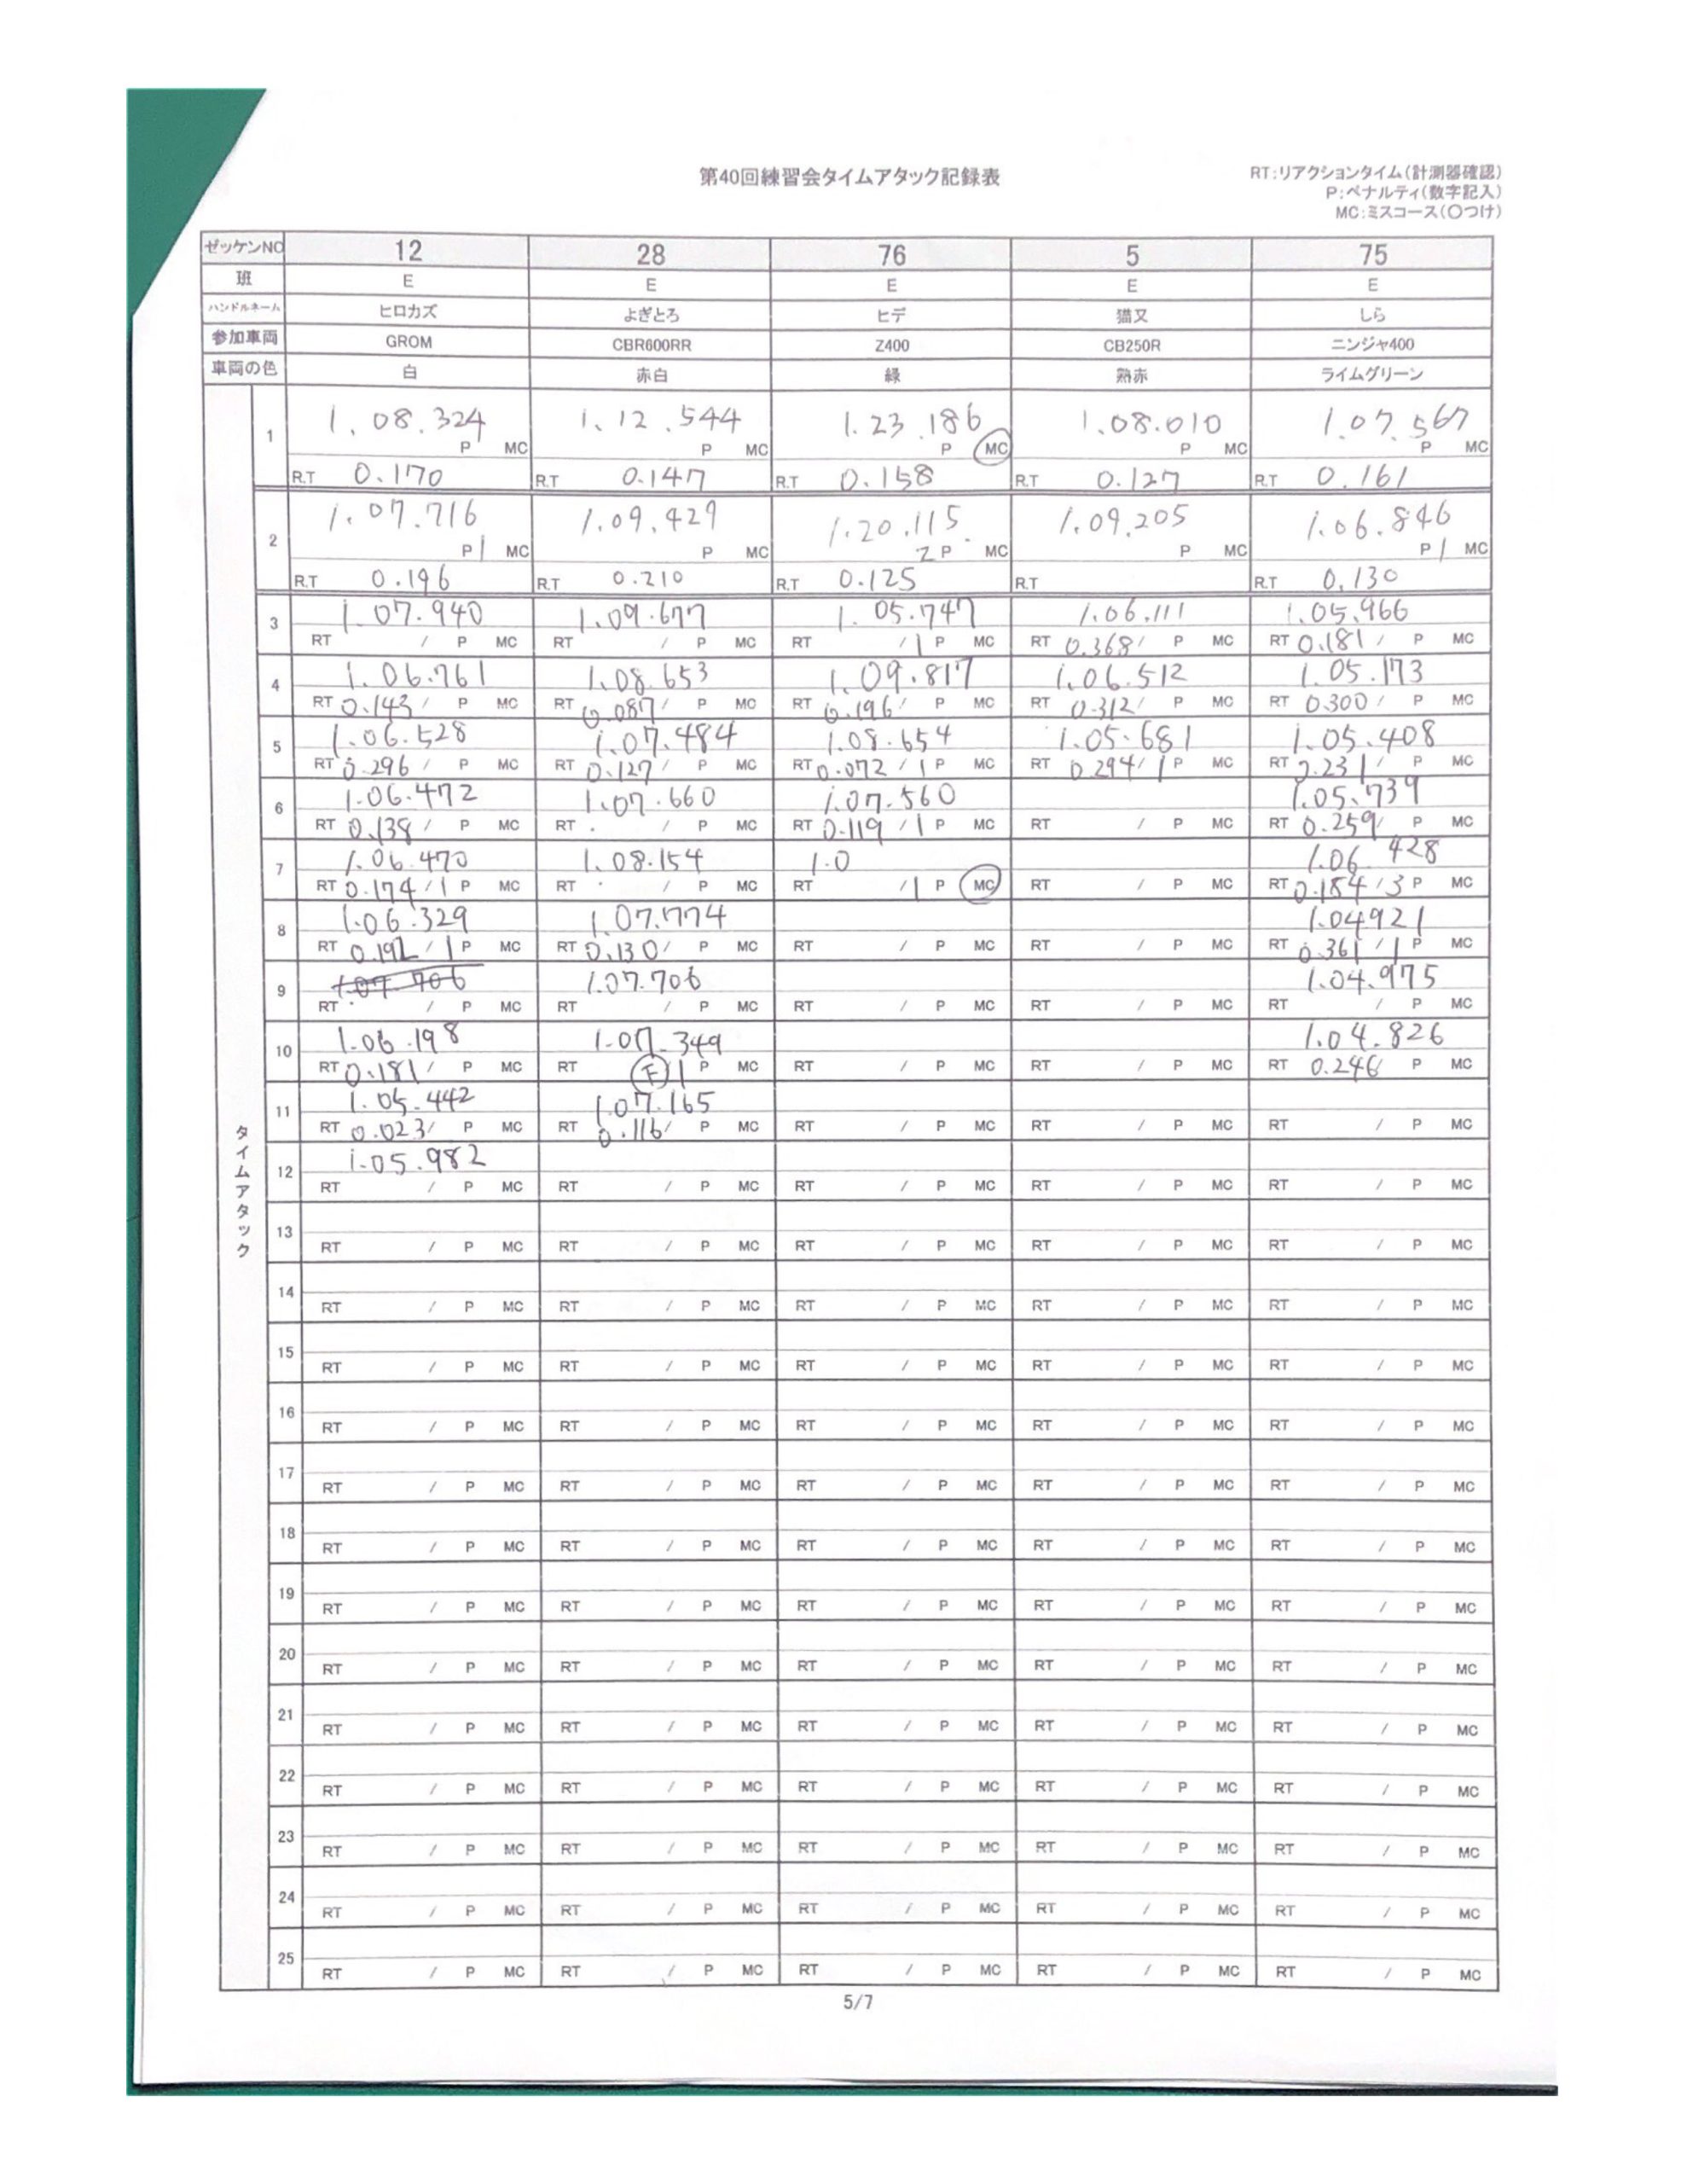 第40回練習会タイムアタック記録表
RT:リアクションタイム(計測器確認)
P:ペナルティ(数字記入)
MC:ミスコース(〇つけ)
ゼッケンNO 12 28 76 5 75
班 E E E E E
ハンドルネーム ヒロカズ よぎとろ ヒデ 猫又 しら
参加車両 GROM CBR600RR Z400 CB250R ニンジャ400
車両の色 白 赤白 緑 熟赤 ライムグリーン
タイムアタック
1 1.08.324 1.12.544 1.23.186 1.08.010 1.07.567
P MC P MC P MC P MC P MC
R.T 0.170 R.T 0.147 R.T 0.158 R.T 0.127 R.T 0.161
2 1.07.716 1.09.429 1.20.115 1.09.205 1.06.846
P 1 MC P MC 2 P MC P MC P 1 MC
R.T 0.196 R.T 0.210 R.T 0.125 R.T R.T 0.130
3 1.07.940 1.09.677 1.05.747 1.06.111 1.05.966
RT / P MC RT / P MC RT / 1 P MC RT 0.368 / P MC RT 0.181 / P MC
4 1.06.761 1.08.653 1.09.817 1.06.512 1.05.173
RT 0.143 / P MC RT 0.087 / P MC RT 0.196 / P MC RT 0.312 / P MC RT 0.300 / P MC
5 1.06.528 1.07.484 1.08.654 1.05.681 1.05.408
RT 0.296 / P MC RT 0.127 / P MC RT 0.072 / 1 P MC RT 0.294 / 1 P MC RT 0.231 / P MC
6 1.06.472 1.07.660 1.07.560 1.05.739
RT 0.138 / P MC RT . / P MC RT 0.119 / 1 P MC RT / P MC RT 0.259 / P MC
7 1.06.470 1.08.154 1.0 1.06.428
RT 0.174 / 1 P MC RT . / P MC RT / 1 P MC RT / P MC RT 0.184 / 3 P MC
8 1.06.329 1.07.774 1.04921
RT 0.192 / 1 P MC RT 0.130 / P MC RT / P MC RT / P MC RT 0.361 / 1 P MC
9 1.07.706 1.07.706 1.04.975
RT . / P MC RT / P MC RT / P MC RT / P MC RT / P MC
10 1.06.198 1.07.349 1.04.826
RT 0.181 / P MC RT F 1 P MC RT / P MC RT / P MC RT 0.246 / P MC
11 1.05.442 1.07.165
RT 0.023 / P MC RT 0.116 / P MC RT / P MC RT / P MC RT / P MC
12 1.05.982
RT / P MC RT / P MC RT / P MC RT / P MC RT / P MC
13
RT / P MC RT / P MC RT / P MC RT / P MC RT / P MC
14
RT / P MC RT / P MC RT / P MC RT / P MC RT / P MC
15
RT / P MC RT / P MC RT / P MC RT / P MC RT / P MC
16
RT / P MC RT / P MC RT / P MC RT / P MC RT / P MC
17
RT / P MC RT / P MC RT / P MC RT / P MC RT / P MC
18
RT / P MC RT / P MC RT / P MC RT / P MC RT / P MC
19
RT / P MC RT / P MC RT / P MC RT / P MC RT / P MC
20
RT / P MC RT / P MC RT / P MC RT / P MC RT / P MC
21
RT / P MC RT / P MC RT / P MC RT / P MC RT / P MC
22
RT / P MC RT / P MC RT / P MC RT / P MC RT / P MC
23
RT / P MC RT / P MC RT / P MC RT / P MC RT / P MC
24
RT / P MC RT / P MC RT / P MC RT / P MC RT / P MC
25
RT / P MC RT / P MC RT / P MC RT / P MC RT / P MC
5/7